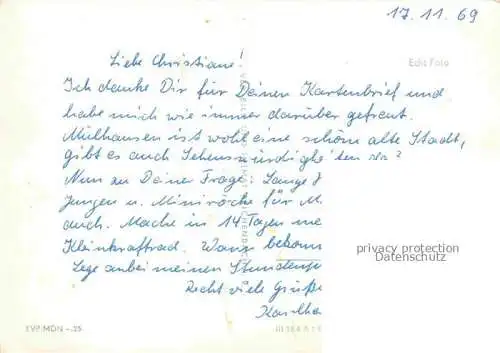 17.11.69
Liebe Christiane!
Echt Foto
Ich danke Dir für Deinen Kartenbrief und
habe mich wie immer darüber gefreut.
Mülhausen ist wohl eine schöne alte Stadt,
gibt es auch Sehenswürdigkeiten da?
Nun zu Deiner Frage. Lange H
Jungen u. Miniröcke für M
auch. Mache in 14 Tagen me
Kleinkraftrad. Wann bekomm
Lege anbei meinen Stundenp
Recht viele Grüße
Karlhe
privacy protection
Datenschutz
EVP MDN -.25